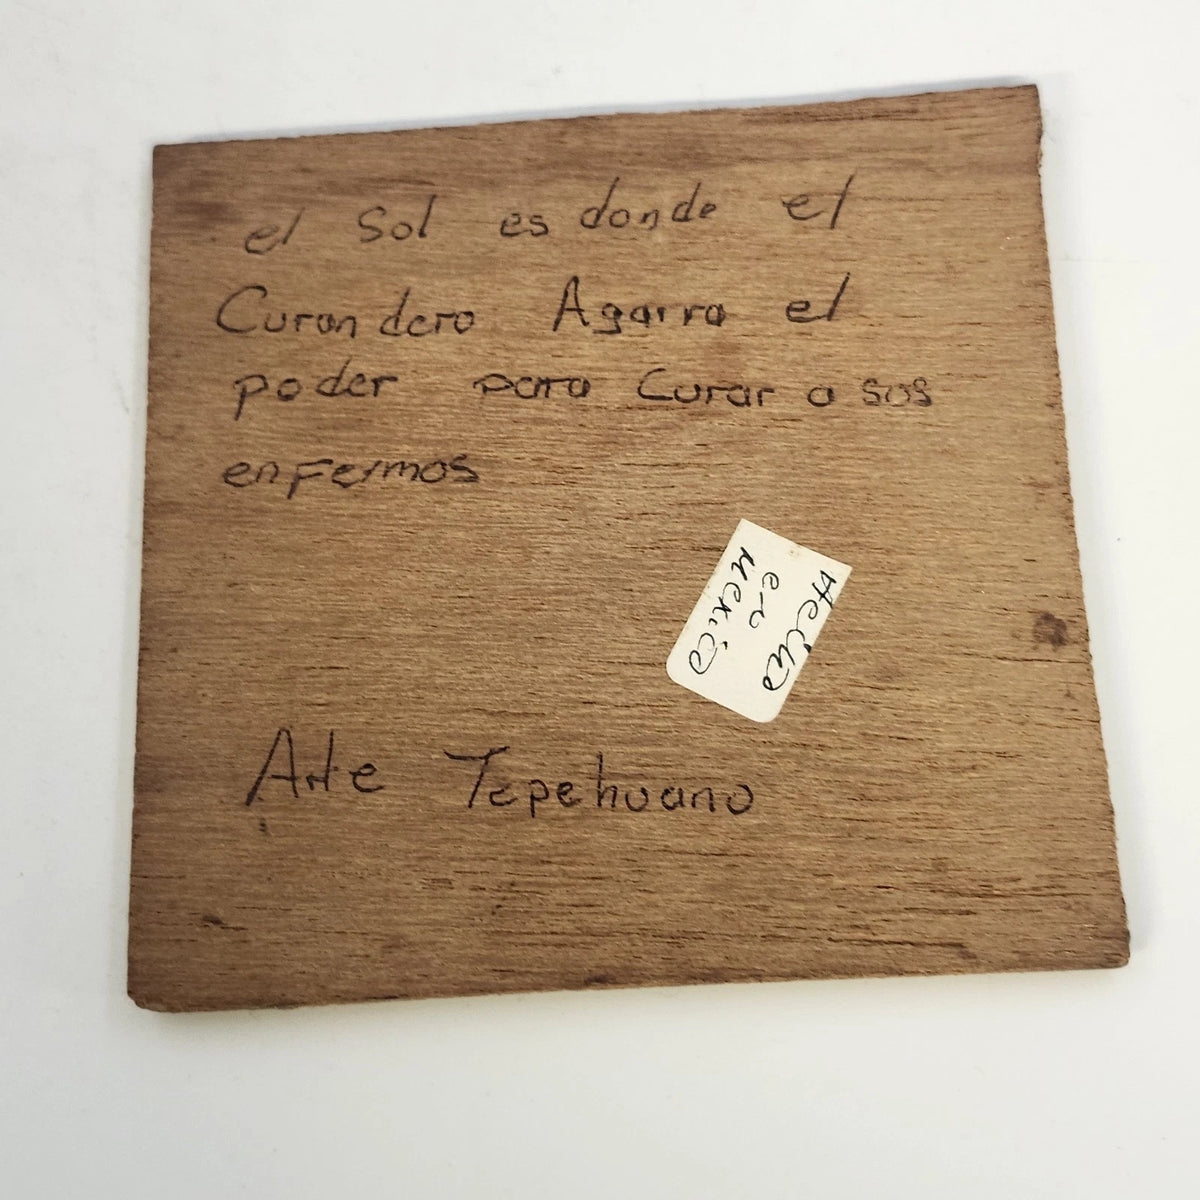 el Sol es donde el
Curandero Agarra el
poder para Curar a sos
enfermos
Hecho
en
Mexico
Arte Tepehuano